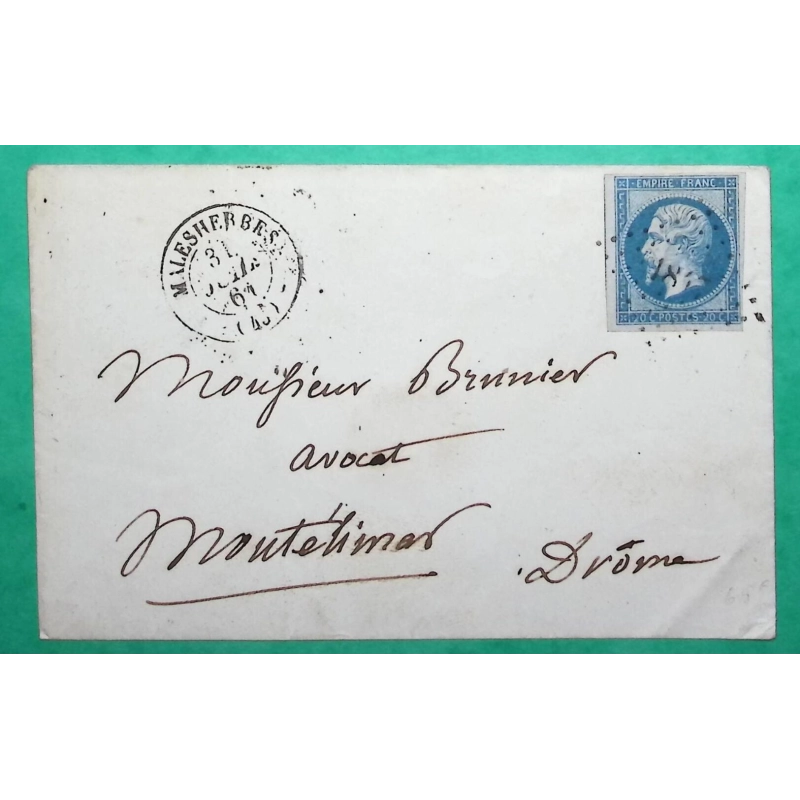 MALESHERBES
31
JUIL
61
(45)
EMPIRE FRANC
20 C POSTES 20 C
Monsieur Brunier
avocat
Montélimar
Drôme